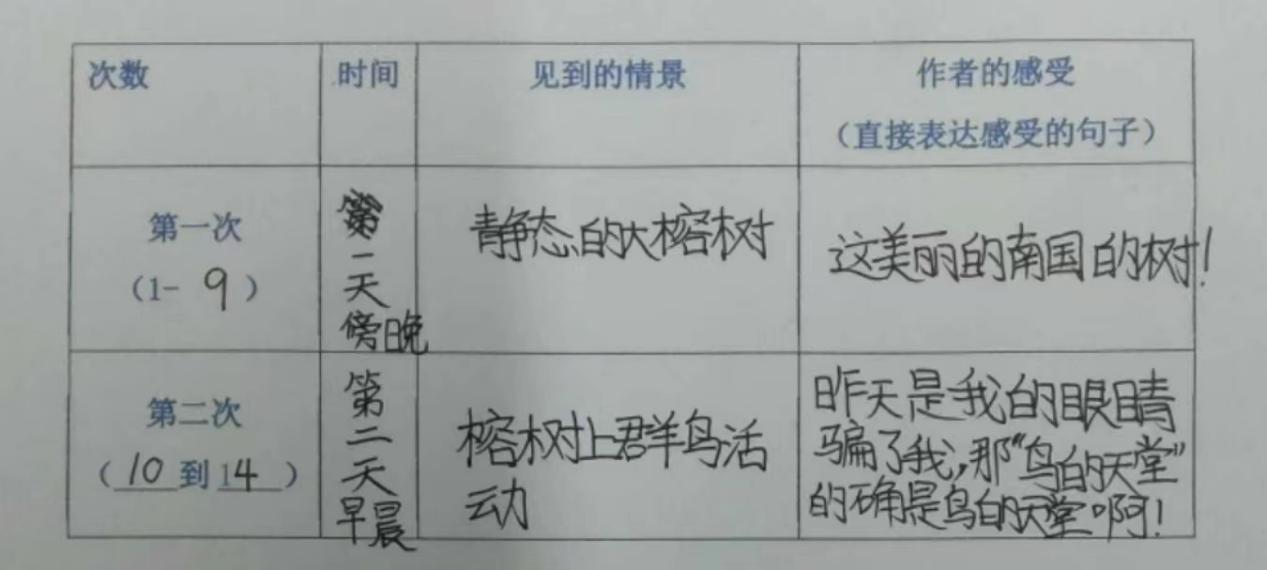 次数 时间 见到的情景 作者的感受
（直接表达感受的句子）
第一次
（1- 9 ）
第
一
天
傍晚
静态的大榕树
这美丽的南国的树！
第二次
（ 10 到 14 ）
第
二
天
早晨
榕树上群鸟活
动
昨天是我的眼睛
骗了我，那“鸟的天堂”
的确是鸟的天堂啊！